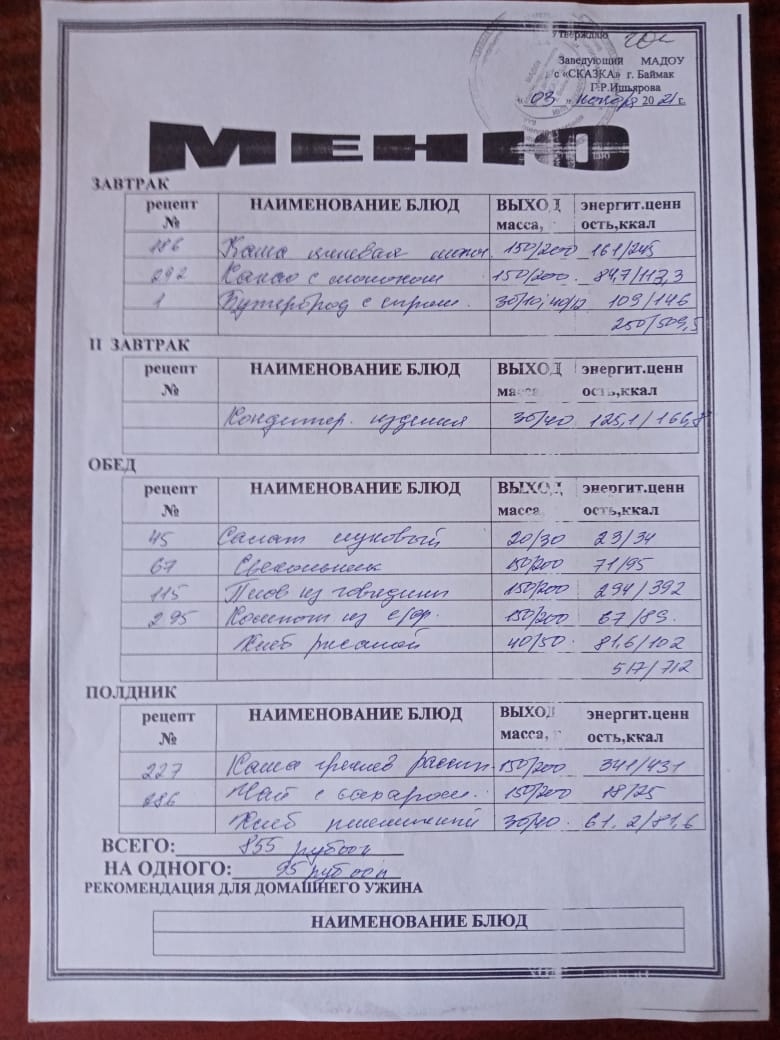 Утверждаю
Заведующий МАДОУ
с «СКАЗКА» г. Баймак
Г.Р.Ишьярова
« 03 » ноября 2021 г.
МЕНЮ
ЗАВТРАК
рецепт № НАИМЕНОВАНИЕ БЛЮД ВЫХОД масса, энергит.ценн ость,ккал
186 Каша молоч. 150/200 161/245
292 Какао с молоком 150/200 84,7/113,3
1 Бутерброд с сыром 30/10; 40/12 109/146
250/509,5
II ЗАВТРАК
рецепт № НАИМЕНОВАНИЕ БЛЮД ВЫХОД масса, энергит.ценн ость,ккал
Кондитер. изделия 30/40 125,1/166,8
ОБЕД
рецепт № НАИМЕНОВАНИЕ БЛЮД ВЫХОД масса, энергит.ценн ость,ккал
45 Салат луковый 20/30 23/34
67 Свекольник 150/200 71/95
115 Плов из говядины 150/200 294/392
295 Компот из с/фр. 150/200 67/89.
Хлеб ржаной 40/50 81,6/102
517/712
ПОЛДНИК
рецепт № НАИМЕНОВАНИЕ БЛЮД ВЫХОД масса, энергит.ценн ость,ккал
227 Каша гречнев рассып. 150/200 341/431
286 Чай с сахаром. 150/200 18/25
Хлеб пшеничный 30/40 61,2/81,6
ВСЕГО: 855 рублей
НА ОДНОГО: 95 рублей
РЕКОМЕНДАЦИЯ ДЛЯ ДОМАШНЕГО УЖИНА
НАИМЕНОВАНИЕ БЛЮД